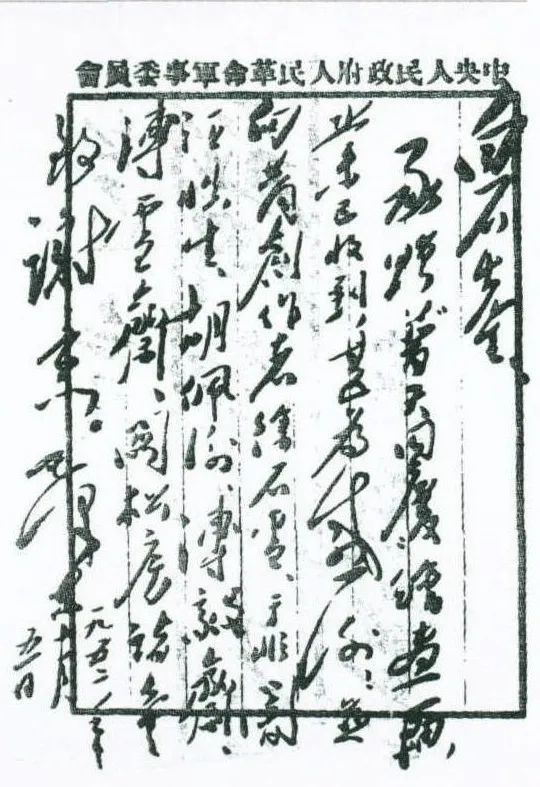 中央人民政府人民革命軍事委員會
白石先生、
承贈普天同慶繪畫一軸、
業已收到、甚為感謝、並
向創作者徐石雪、于非闇、
汪慎生、胡佩衡、溥毅齋、
溥雪齋、關松房諸先生
致謝意。毛澤東
一九五二年十月
五日